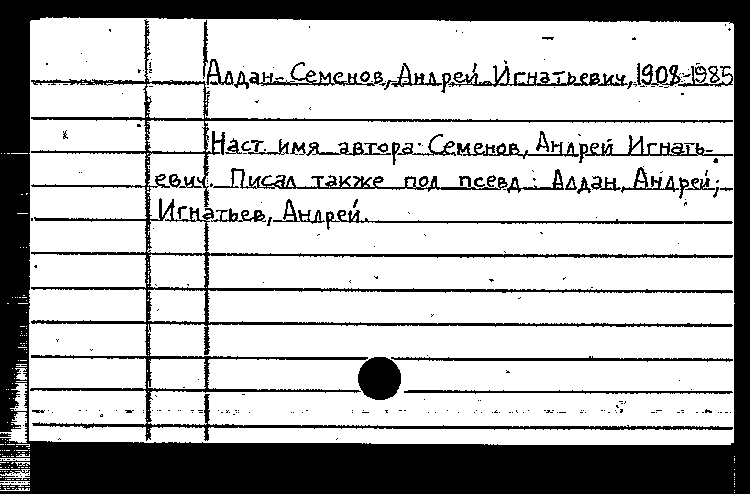 Алдан-Семенов, Андрей Игнатьевич, 1908-1985
Наст. имя автора: Семенов, Андрей Игнать-
евич. Писал также под псевд.: Алдан, Андрей;
Игнатьев, Андрей.